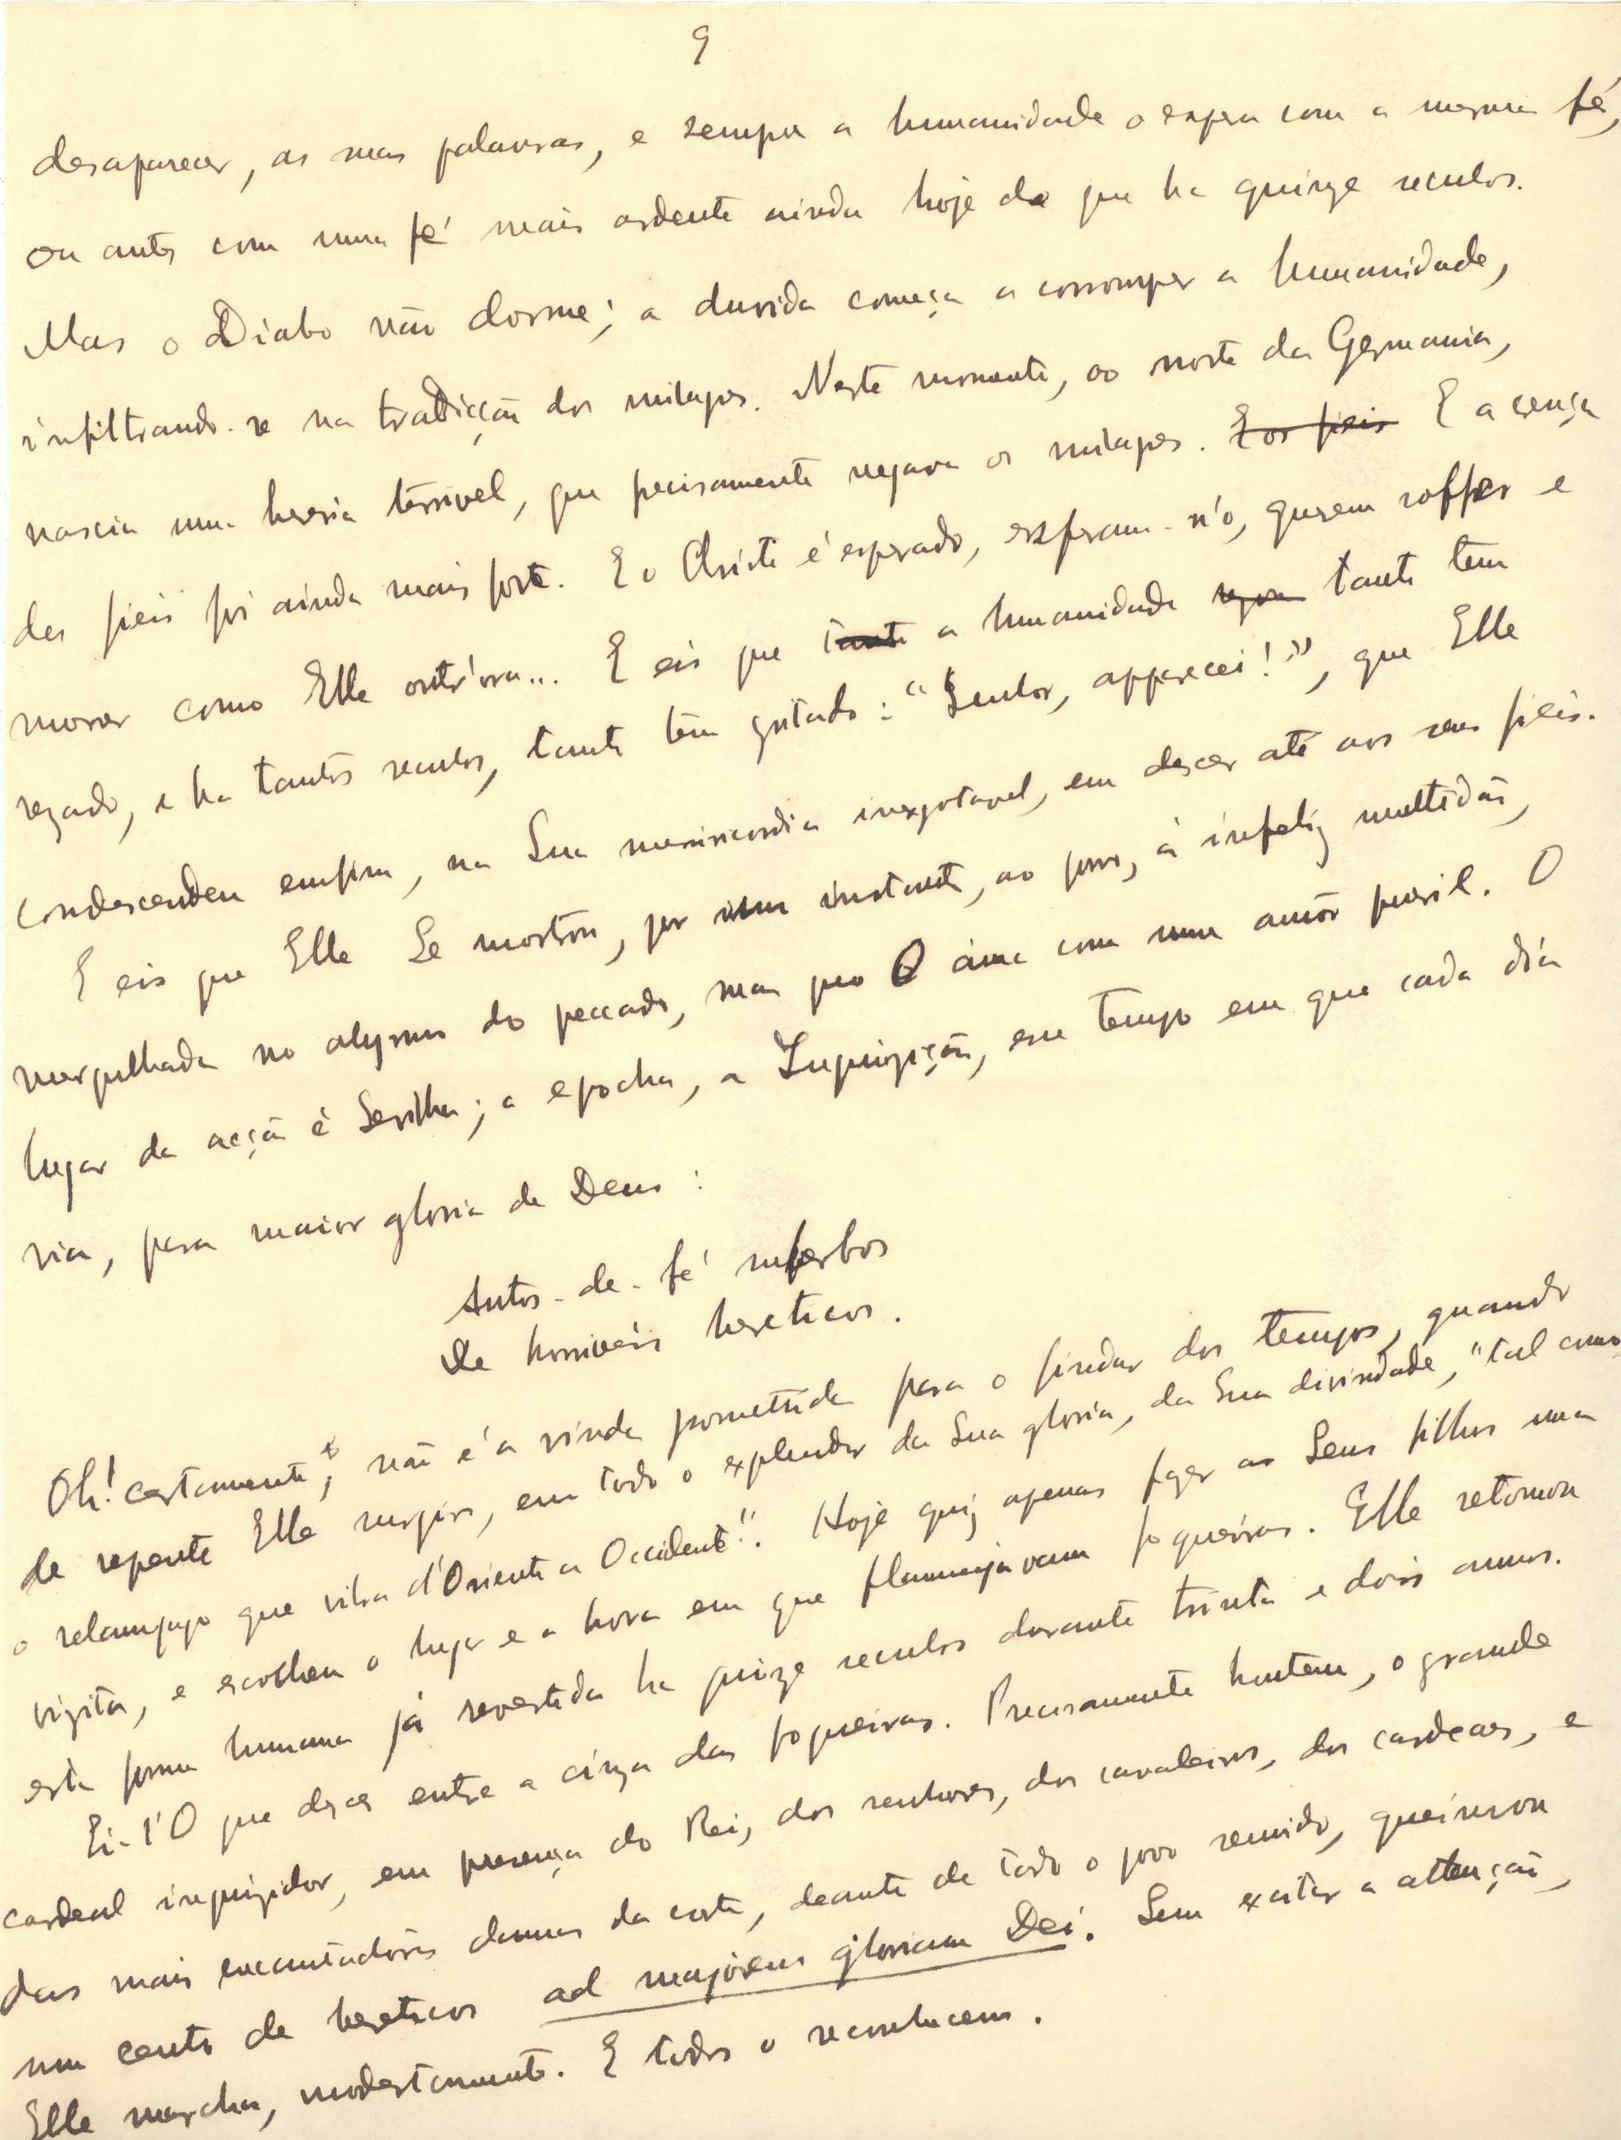 9
desaparecer, as suas palavras, e sempre a humanidade o espera com a mesma fé,
ou antes com uma fé mais ardente ainda hoje do que ha quinze seculos.
Mas o Diabo não dorme; a duvida começa a corromper a humanidade,
infiltrando-se na tradicção dos milagres. Neste momento, ao norte da Germania,
nascia uma heresia terrivel, que precisamente negava os milagres. E os fieis E a crença
dos fieis foi ainda mais forte. E o Christo é esperado, esperam-n'o, querem soffrer e
morrer como Elle outr'ora... E eis que tanto a humanidade tanto tem
rezado, e ha tantos seculos, tanto tem gritado: "Senhor, apparecei!", que Elle
condescendeu emfim, na Sua misericordia inexgotavel, em descer até aos seus fieis.
E eis que Elle Se mostrou, por um instante, ao povo, á infeliz multidão,
mergulhada no abysmo do peccado, mas que O ama com um amor pueril. O
lugar da acção é Sevilha; a epocha, a Inquizição, esse tempo em que cada dia
via, para maior gloria de Deus:
Autos-de-fé superbos
De horriveis hereticos.
Oh! certamente, não é a vinda promettida para o findar dos tempos, quando
de repente Elle surgir, em todo o explendor da Sua gloria, da Sua divindade, "tal como
o relampago que vibra d'Oriente a Occidente". Hoje quiz apenas fazer aos Seus filhos uma
vizita, e escolheu o lugar e a hora em que flammejavam fogueiras. Elle retomou
esta forma humana já revestida ha quinze seculos durante trinta e dois annos.
Ei-l'O que desce entre a cinza das fogueiras. Precisamente hontem, o grande
cardeal inquizidor, em presença do Rei, dos senhores, dos cavaleiros, dos cardeaes, e
das mais encantadoras damas da corte, deante de todo o povo reunido, queimou
um cento de hereticos ad majorem gloriam Dei. Sem excitar a attenção,
Elle marcha, modestamente. E todos o reconhecem.